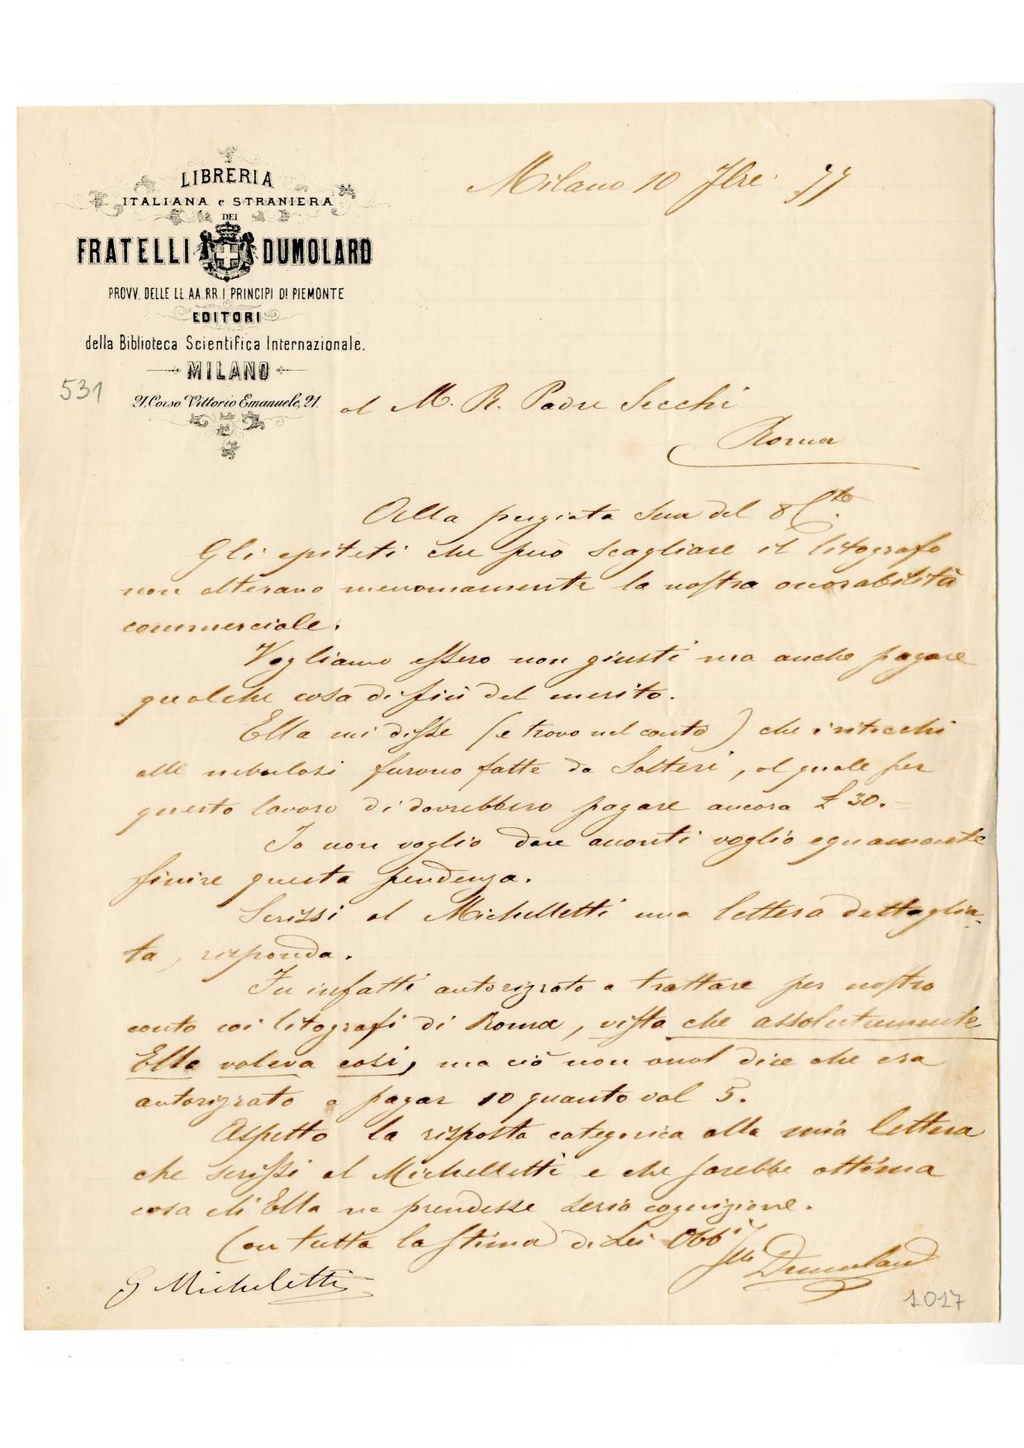 LIBRERIA
ITALIANA e STRANIERA
DEI
FRATELLI DUMOLARD
PROVV. DELLE LL.AA.RR. I PRINCIPI DI PIEMONTE
EDITORI
della Biblioteca Scientifica Internazionale.
MILANO
21, Corso Vittorio Emanuele, 21.
531
Milano 10 7bre 77
al M. R. Padre Secchi
Roma
Alla pregiata Sua del 8 Cte.
Gli epiteti che può scagliare il litografo
non alterano menomamente la nostra onorabilità
commerciale.
Vogliamo essere non giusti ma anche pagare
qualche cosa di più del merito.
Ella mi disse (e trovo nel conto) che i ritocchi
alle nebulosi furono fatte da Salteri, al quale per
questo lavoro di dovrebbero pagare ancora £ 30.-
Io non voglio dare avanti voglio egualmente
finire questa pendenza.
Scrissi al Michelletti una lettera dettaglia-
ta, risponda.
Fu infatti autorizzato a trattare per nostro
conto coi litografi di Roma, vista che assolutamente
Ella voleva così, ma ciò non vuol dire che era
autorizzato a pagar 10 quanto val 5.
Aspetto la risposta categorica alla mia lettera
che scrissi al Michelletti e che sarebbe ottima
cosa ch'Ella ne prendesse seria cognizione.
Con tutta la stima di Lei Obb
Flli Dumolard
G Micheletti
1017